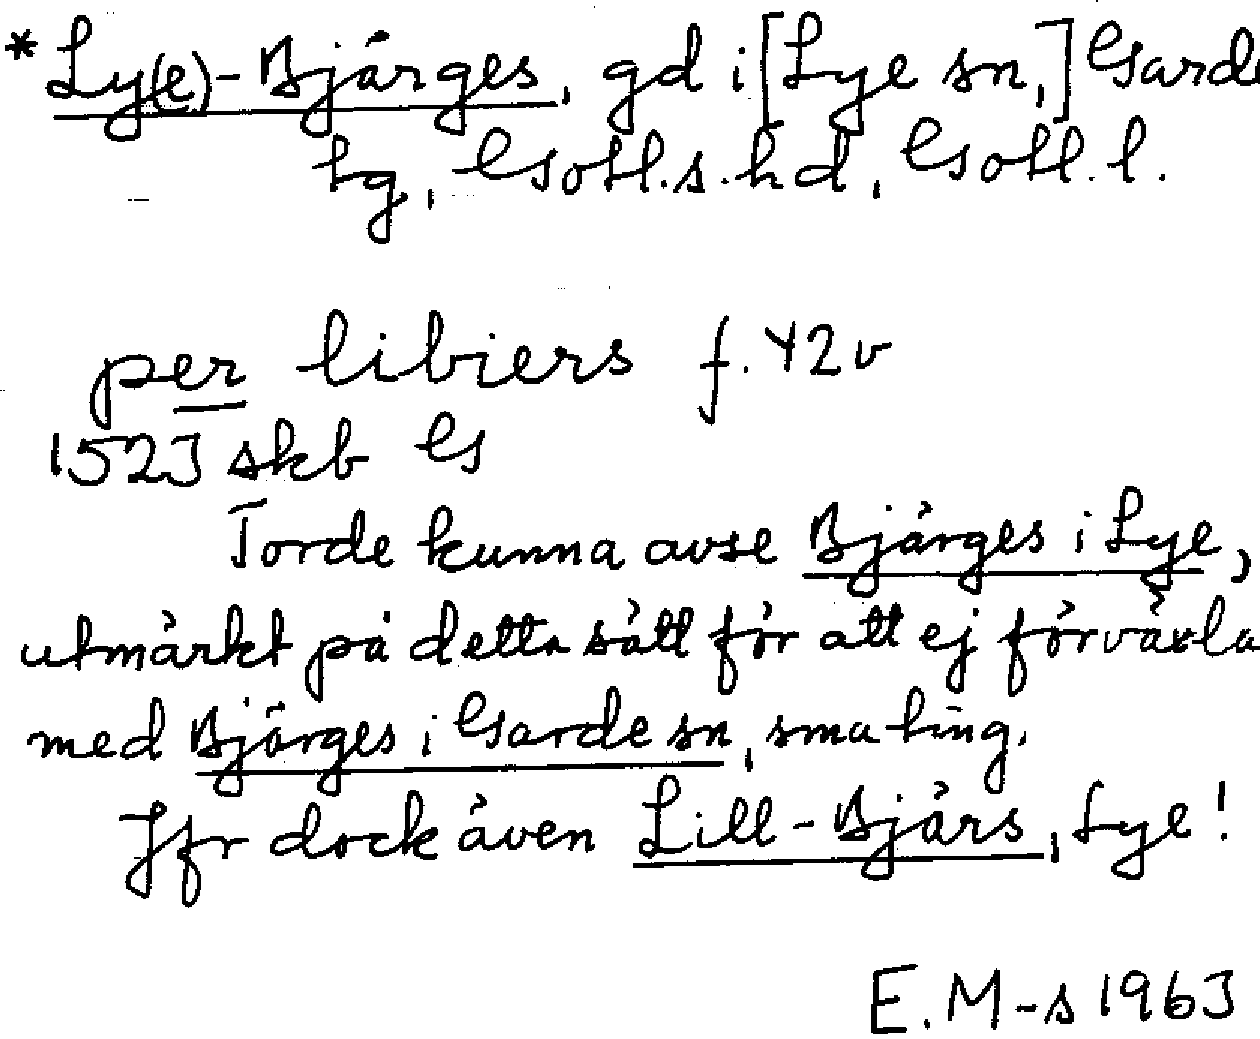 *Ly(e)-Bjärges, gd i [Lye sn,] Garde
tg, Gotl.s.hd, Gotl.l.
per libiers f. 42v
1523 skb G
Torde kunna avse Bjärges i Lye,
utmärkt på detta sätt för att ej förväxla
med Bjärges i Garde sn, sma ting.
Jfr dock även Lill-Bjärs, Lye!
E.M-s 1963